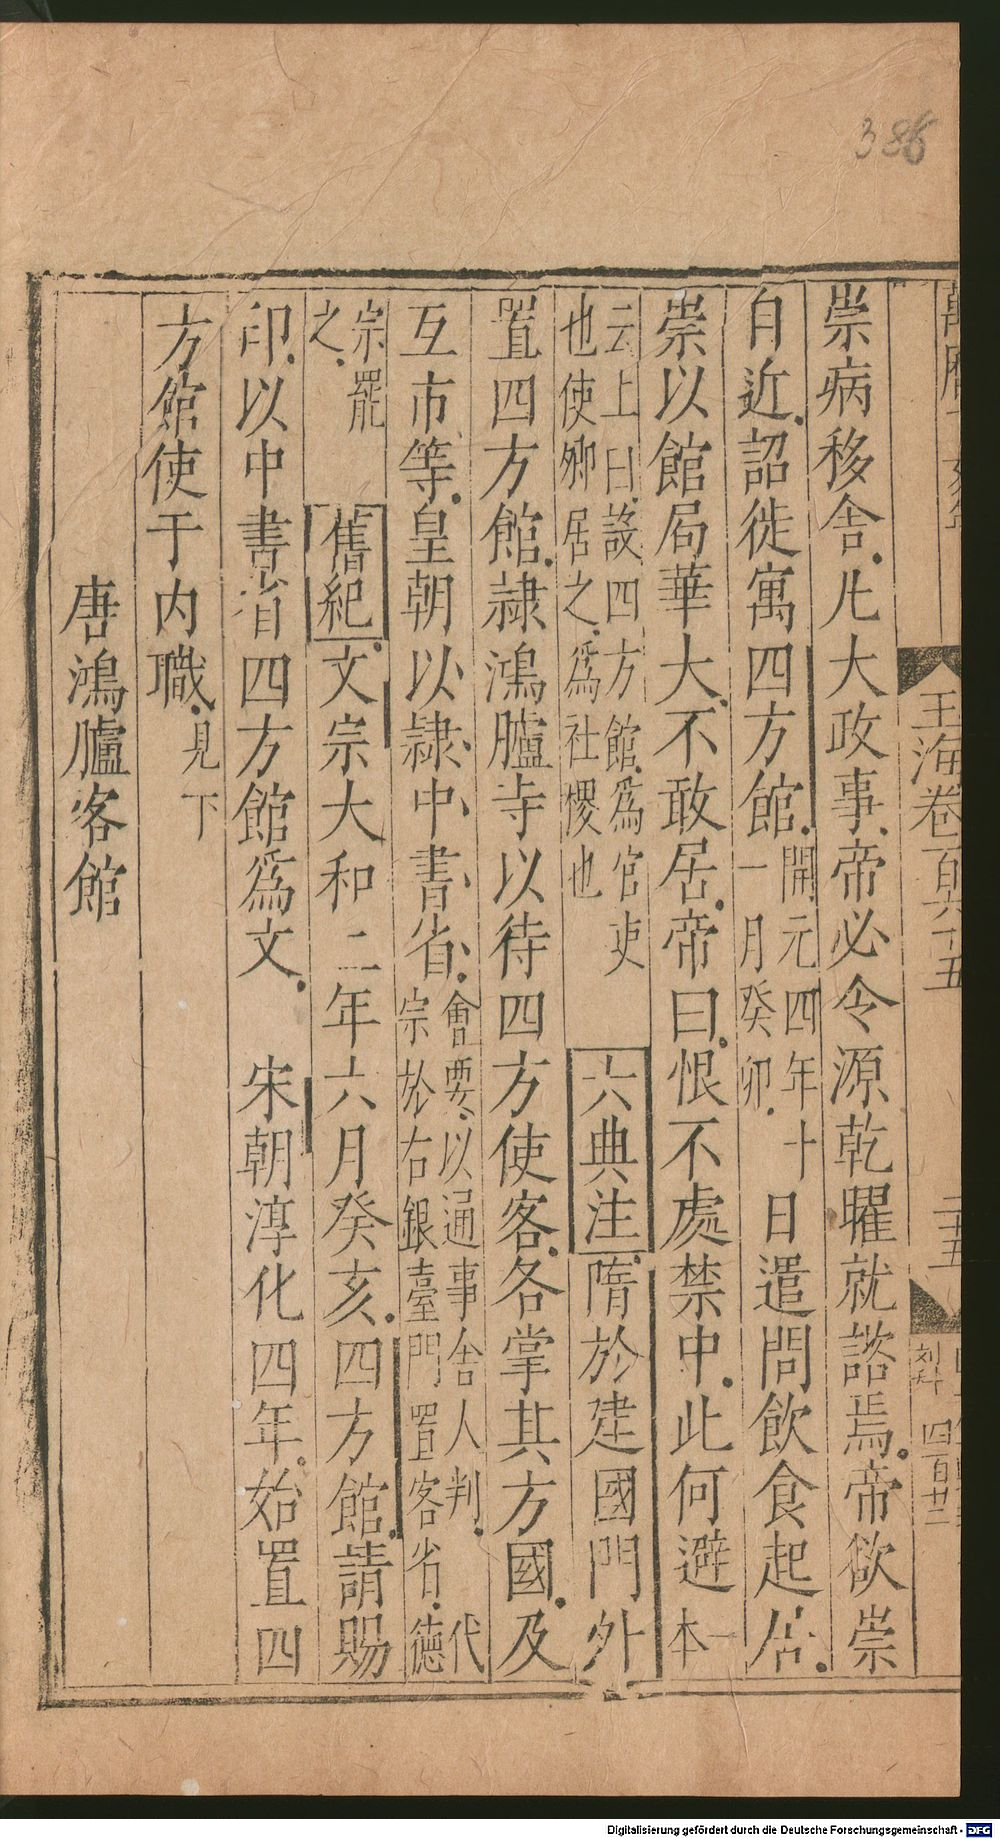 386
玉海卷一百六十五
二十五
四百廿二
崇病移舍凡大政事帝必令源乾曜就諮焉帝欲崇
自近詔徙寓四方館開元四年十一月癸卯日遣問飲食起居
崇以館局華大不敢居帝曰恨不處禁中此何避一本
云上曰設四方館為官吏也使卿居之為社稷也 六典注隋於建國門外
置四方館隷鴻臚寺以待四方使客各掌其方國及
互市等皇朝以隷中書省會要以通事舍人判代宗於右銀臺門置客省德
宗罷之 舊紀文宗大和二年六月癸亥四方館請賜
印以中書省四方館為文 宋朝淳化四年始置四
方館使于内職見下
唐鴻臚客館
Digitalisierung gefördert durch die Deutsche Forschungsgemeinschaft - DFG